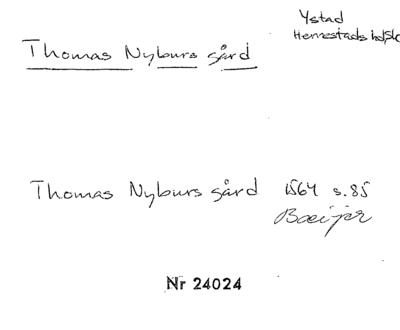 Ystad
Herrestads hd, Sk
Thomas Nyburs gård
Thomas Nyburs gård 1564 s. 85
Bæijer
Nr 24024